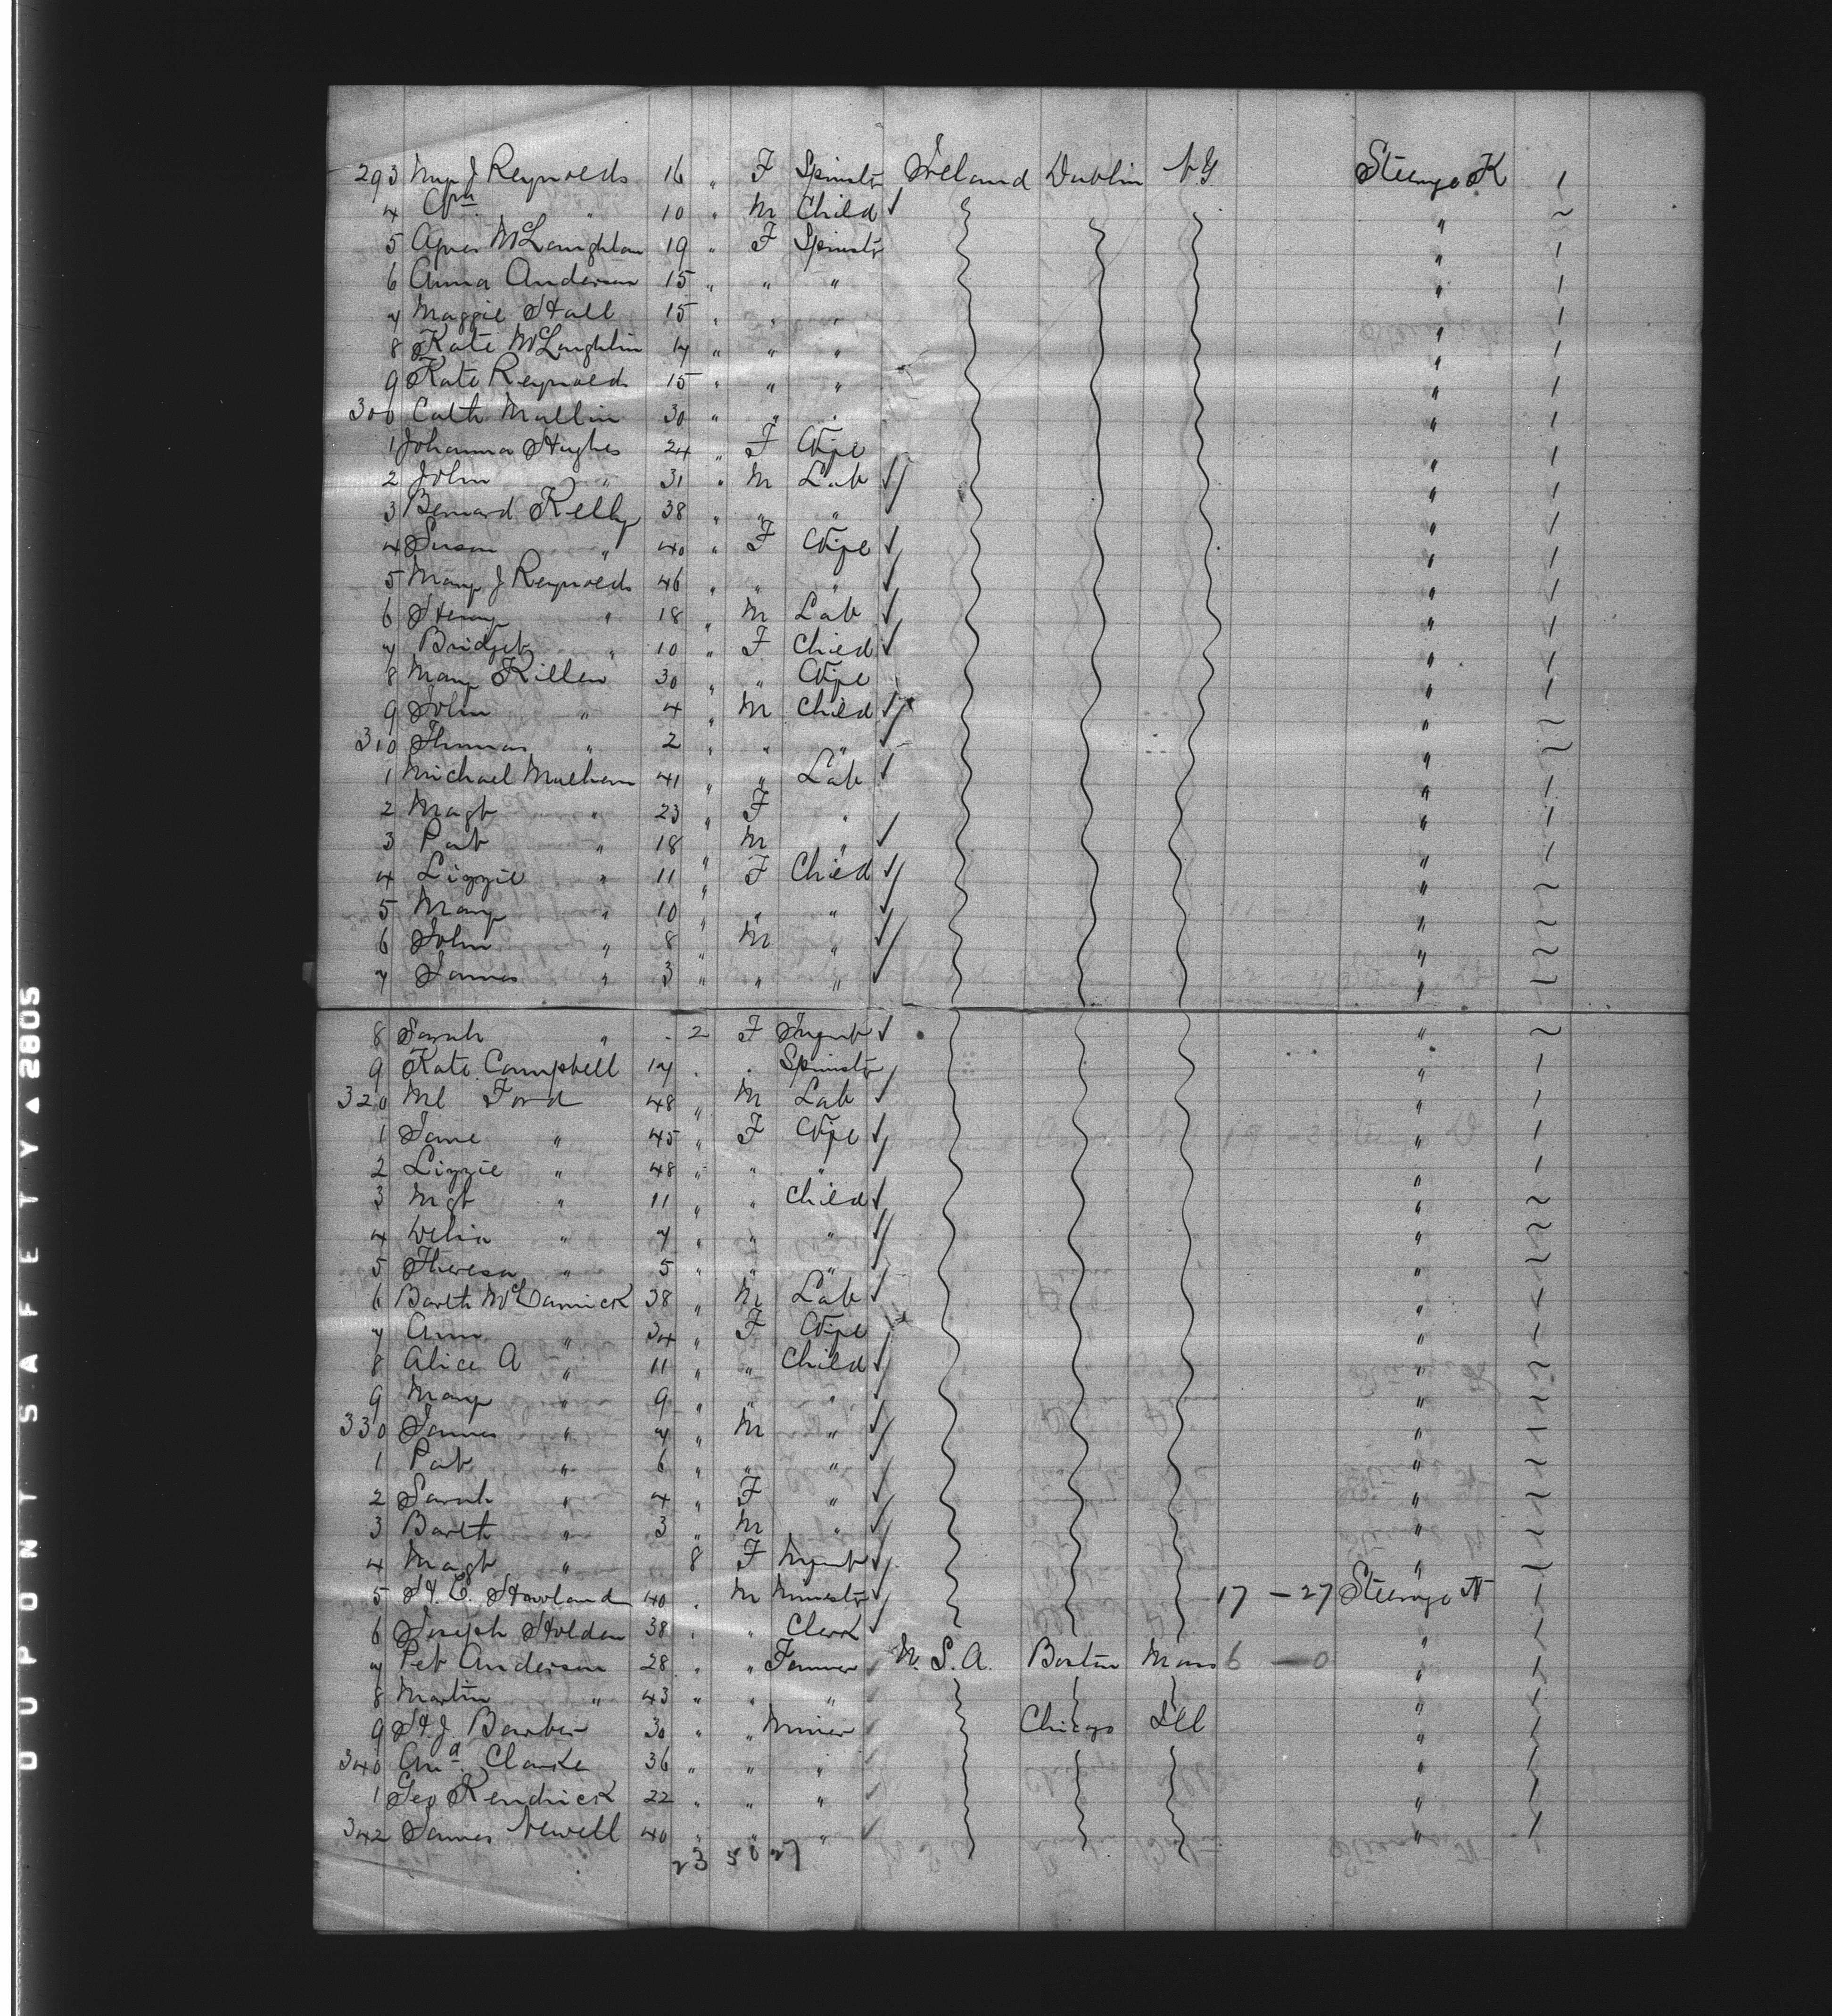 293 Mary J Reynolds 16 " F Spinstr Ireland Dublin N.Y. Steerage K 1
4 Wm " 10 " M Child ✓ "
5 Agnes McLaughlan 19 " F Spinstr " 1
6 Anna Anderson 15 " " " " 1
7 Maggie Hall 15 " " " " 1
8 Kate McLaughlin 17 " " " " 1
9 Kate Reynolds 15 " " " " 1
300 Cath Mallin 30 " " " " 1
1 Johanna Hughes 24 " F Wife " 1
2 John " 31 " M Lab ✓ " 1
3 Bernard Kelly 38 " " " ✓ " 1
4 Susan " 40 " F Wife ✓ " 1
5 Mary J Reynolds 46 " " " ✓ " 1
6 Henry " 18 " M Lab ✓ " 1
7 Bridget " 10 " F Child ✓ " 1
8 Mary Killen 30 " " Wife " 1
9 John " 4 " M Child ✓ "
310 Thomas " 2 " " " ✓ "
1 Michael Mulhern 41 " " Lab ✓ " 1
2 Magt " 23 " F " " 1
3 Pat " 18 " M " ✓ " 1
4 Lizzie " 11 " F Child ✓ "
5 Mary " 10 " " " ✓ "
6 John " 8 " M " ✓ "
7 James " 3 " " " ✓ "
8 Sarah " 2 F Infant ✓ "
9 Kate Campbell 17 " " Spinstr " 1
320 Ml Ford 48 " M Lab ✓ " 1
1 Jane " 45 " F Wife ✓ " 1
2 Lizzie " 48 " " " ✓ " 1
3 Mgt " 11 " " Child ✓ "
4 Delia " 7 " " " ✓ "
5 Theresa " 5 " " " ✓ "
6 Barth McCormick 38 " M Lab ✓ " 1
7 Ann " 34 " F Wife " 1
8 Alice A " 11 " " Child ✓ "
9 Mary " 9 " " " ✓ "
330 James " 7 " M " ✓ "
1 Pat " 6 " " " ✓ "
2 Sarah " 4 " F " ✓ "
3 Barth " 3 " M " ✓ "
4 Magt " 8 F Infant ✓ "
5 H. C. Howland 40 " M Ministr ✓ 17 — 27 Steerage N 1
6 Joseph Holden 38 " " Clerk ✓ " 1
7 Pet Anderson 28 " " Farmer ✓ U.S.A. Boston Mass 6 — 0 " 1
8 Martin " 43 " " " ✓ " 1
9 H. J. Barber 30 " " Miner ✓ Chicago Ill " 1
340 Clarke 36 " " " ✓ " 1
1 Geo Kendrick 22 " " " ✓ " 1
342 James Newell 40 " " " ✓ " 1
23 50 27
DUPONT SAFETY ▲ 2805